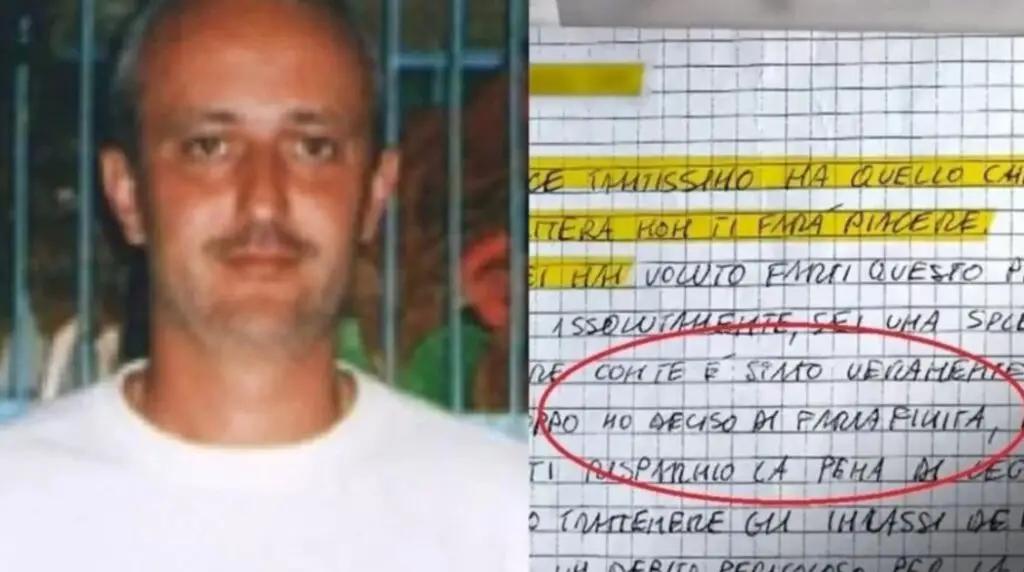 CE TANTISSIMO HA QUELLO CH
TTERA NON TI FARÀ PIACERE.
EI HAI VOLUTO FARTI QUESTO P
ASSOLUTAMENTE, SEI UNA SPLE
RE CON TE E SIMO VERAMENTE
RPO HO DECISO DI FARLA FINITA,
TI RISPARMIO LA PENA DI LEG
O TRATTENERE GLI INCASSI DE
UN DEBITO PERICOLOSO PER LA